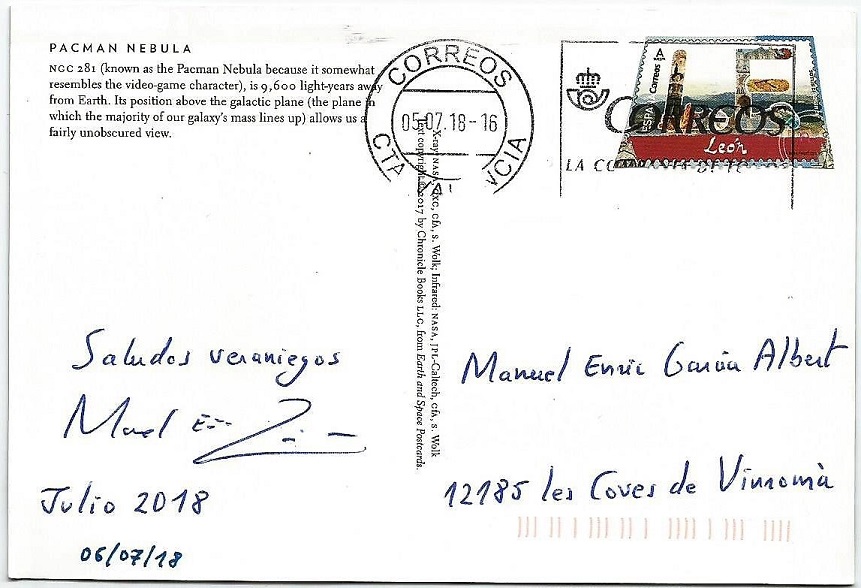 PACMAN NEBULA
NGC 281 (known as the Pacman Nebula because it somewhat
resembles the video-game character), is 9,600 light-years away
from Earth. Its position above the galactic plane (the plane in
which the majority of our galaxy's mass lines up) allows us a
fairly unobscured view.
CORREOS
05-07 18-16
CTA VALENCIA
A
Correos
CORREOS
León
X-ray: NASA, CXC, CfA, S. Wolk; Infrared: NASA, JPL-Caltech, CfA, S. Wolk
Text copyright © 2017 by Chronicle Books LLC, from Earth and Space Postcards.
Saludos veraniegos
Julio 2018
06/07/18
Manuel Enric García Albert
12185 les Coves de Vinromà